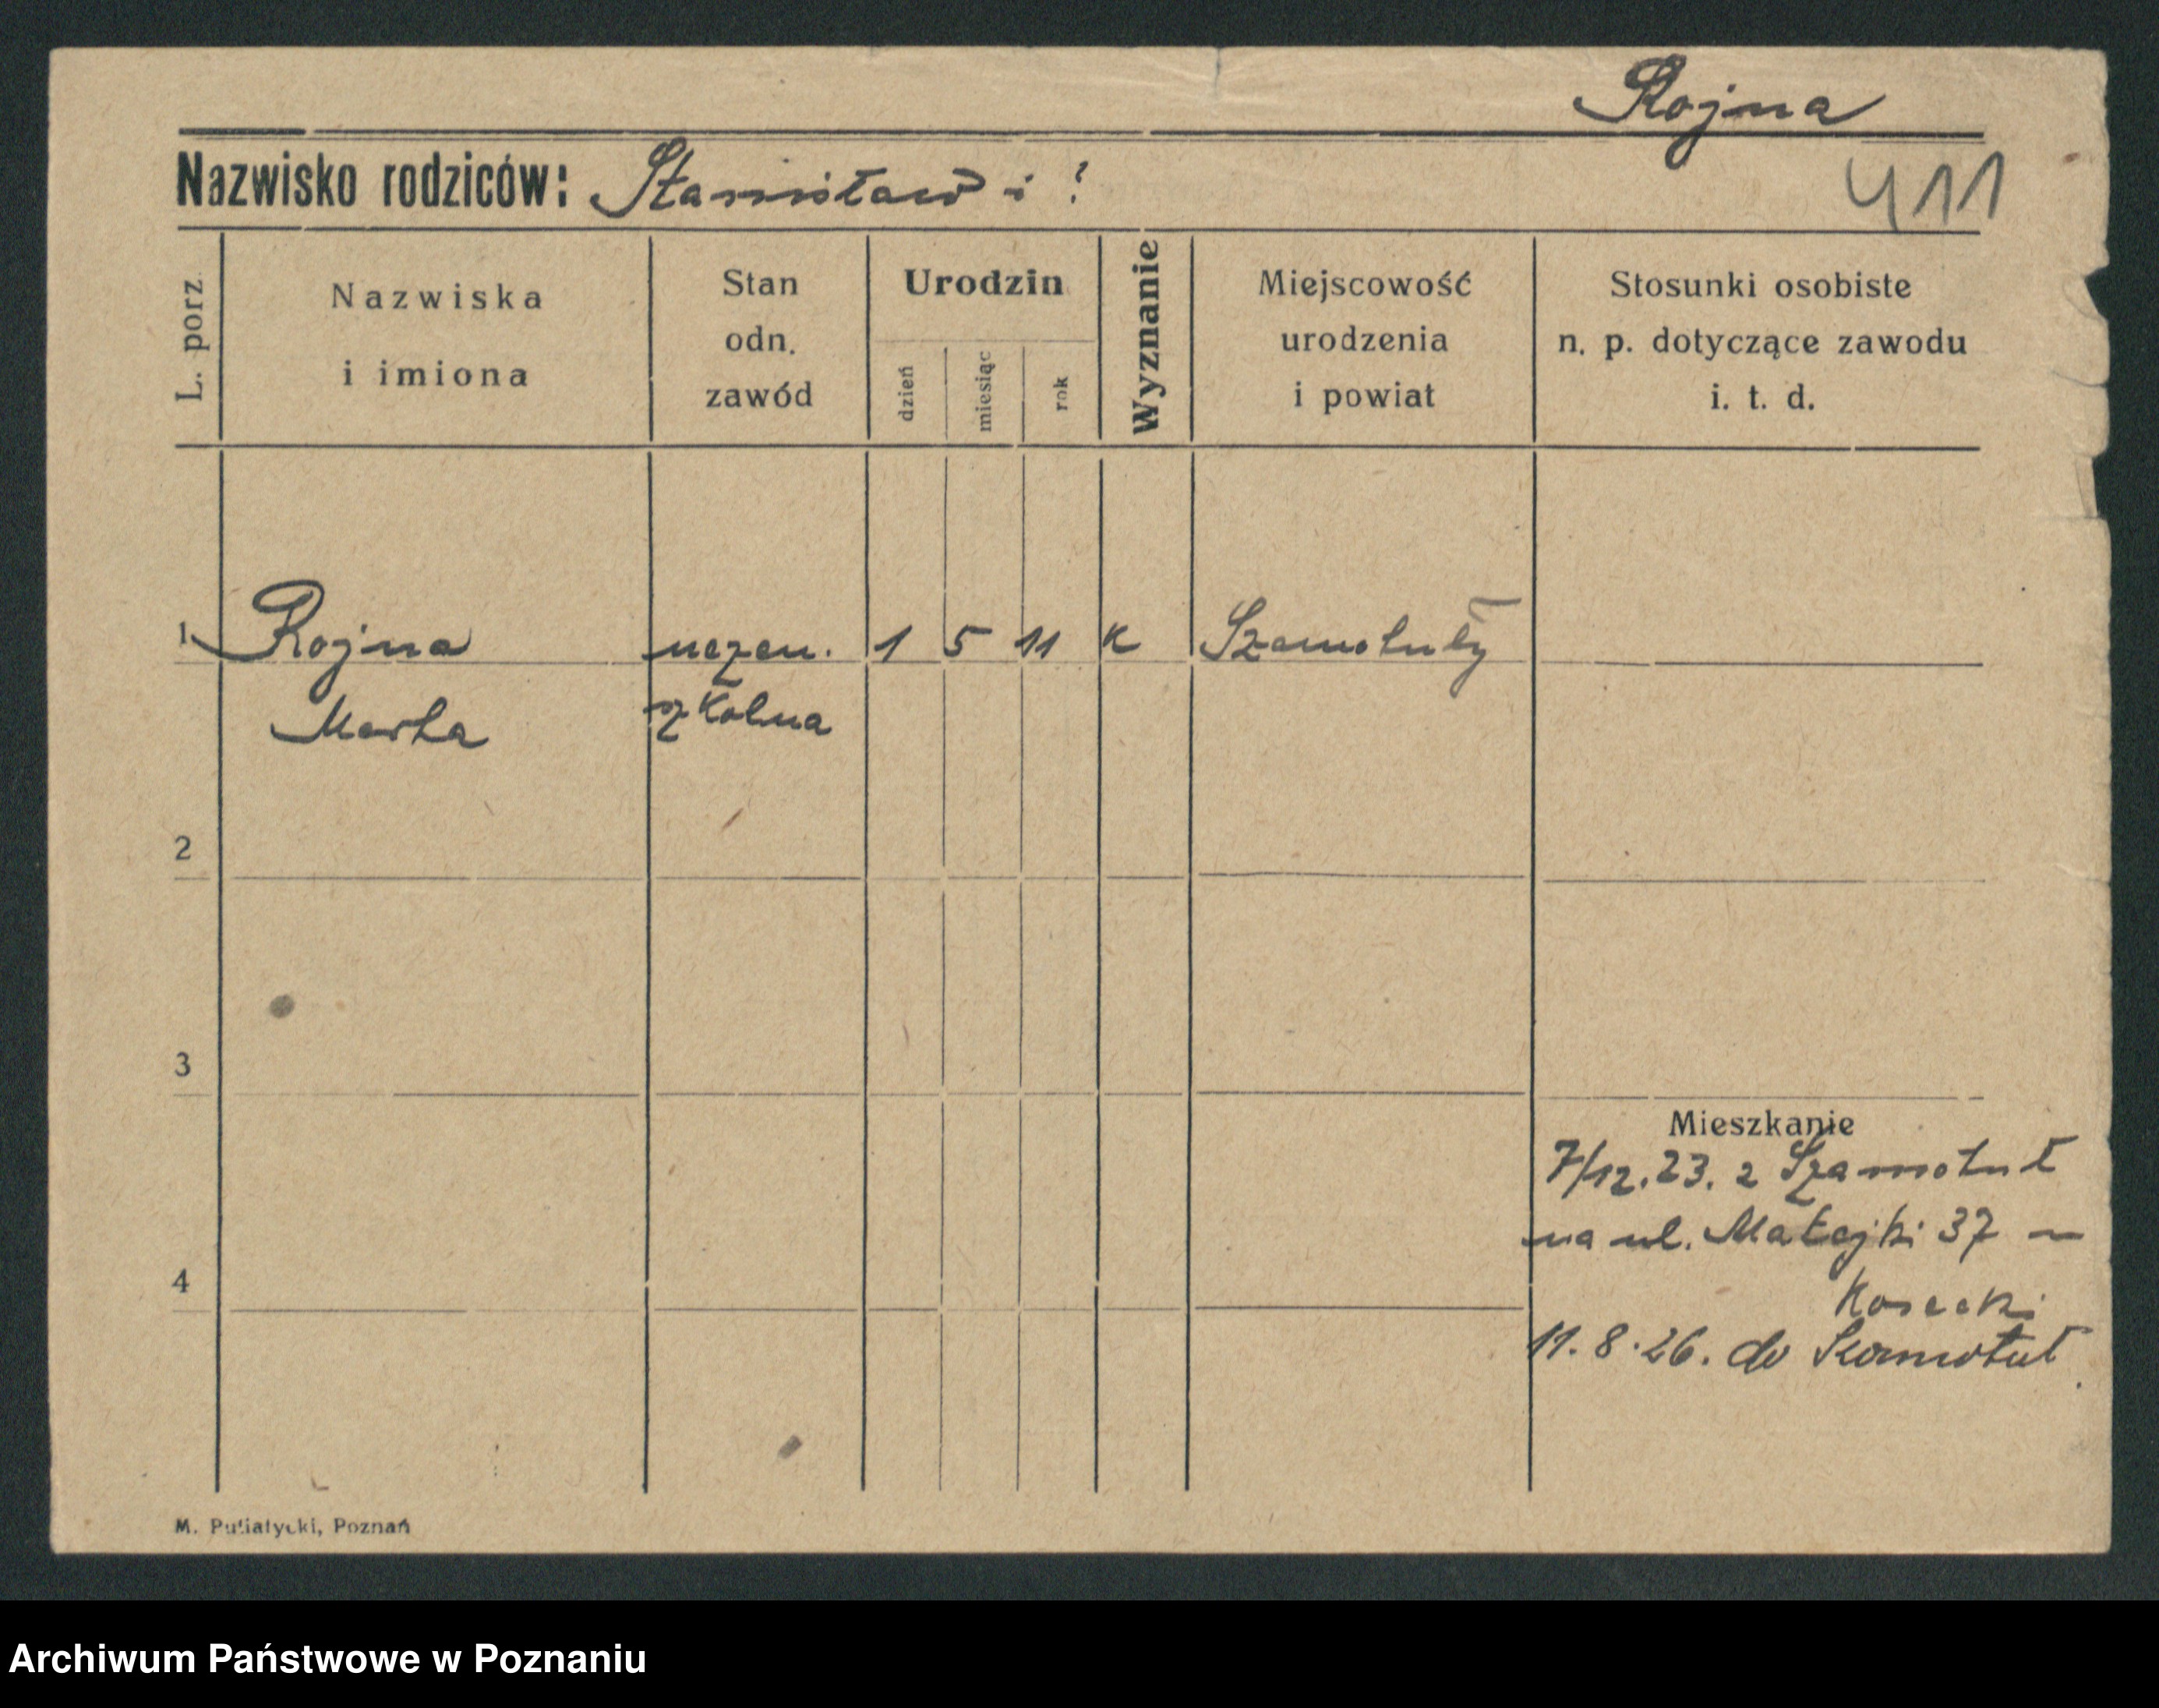 Rojna
Nazwisko rodziców: Stanisław i ?
411
L. porz.
Nazwiska
i imiona
Stan
odn.
zawód
Urodzin
dzień
miesiąc
rok
Wyznanie
Miejscowość
urodzenia
i powiat
Stosunki osobiste
n. p. dotyczące zawodu
i. t. d.
1 Rojna uczen. 1 5 11 K Szamotuły
Marta szkolna
2
3
Mieszkanie
7/12.23. z Szamotuł
na ul. Matejki 37 –
4
Kosecki
11.8.26. do Szamotuł
M. Putiatycki, Poznań
Archiwum Państwowe w Poznaniu